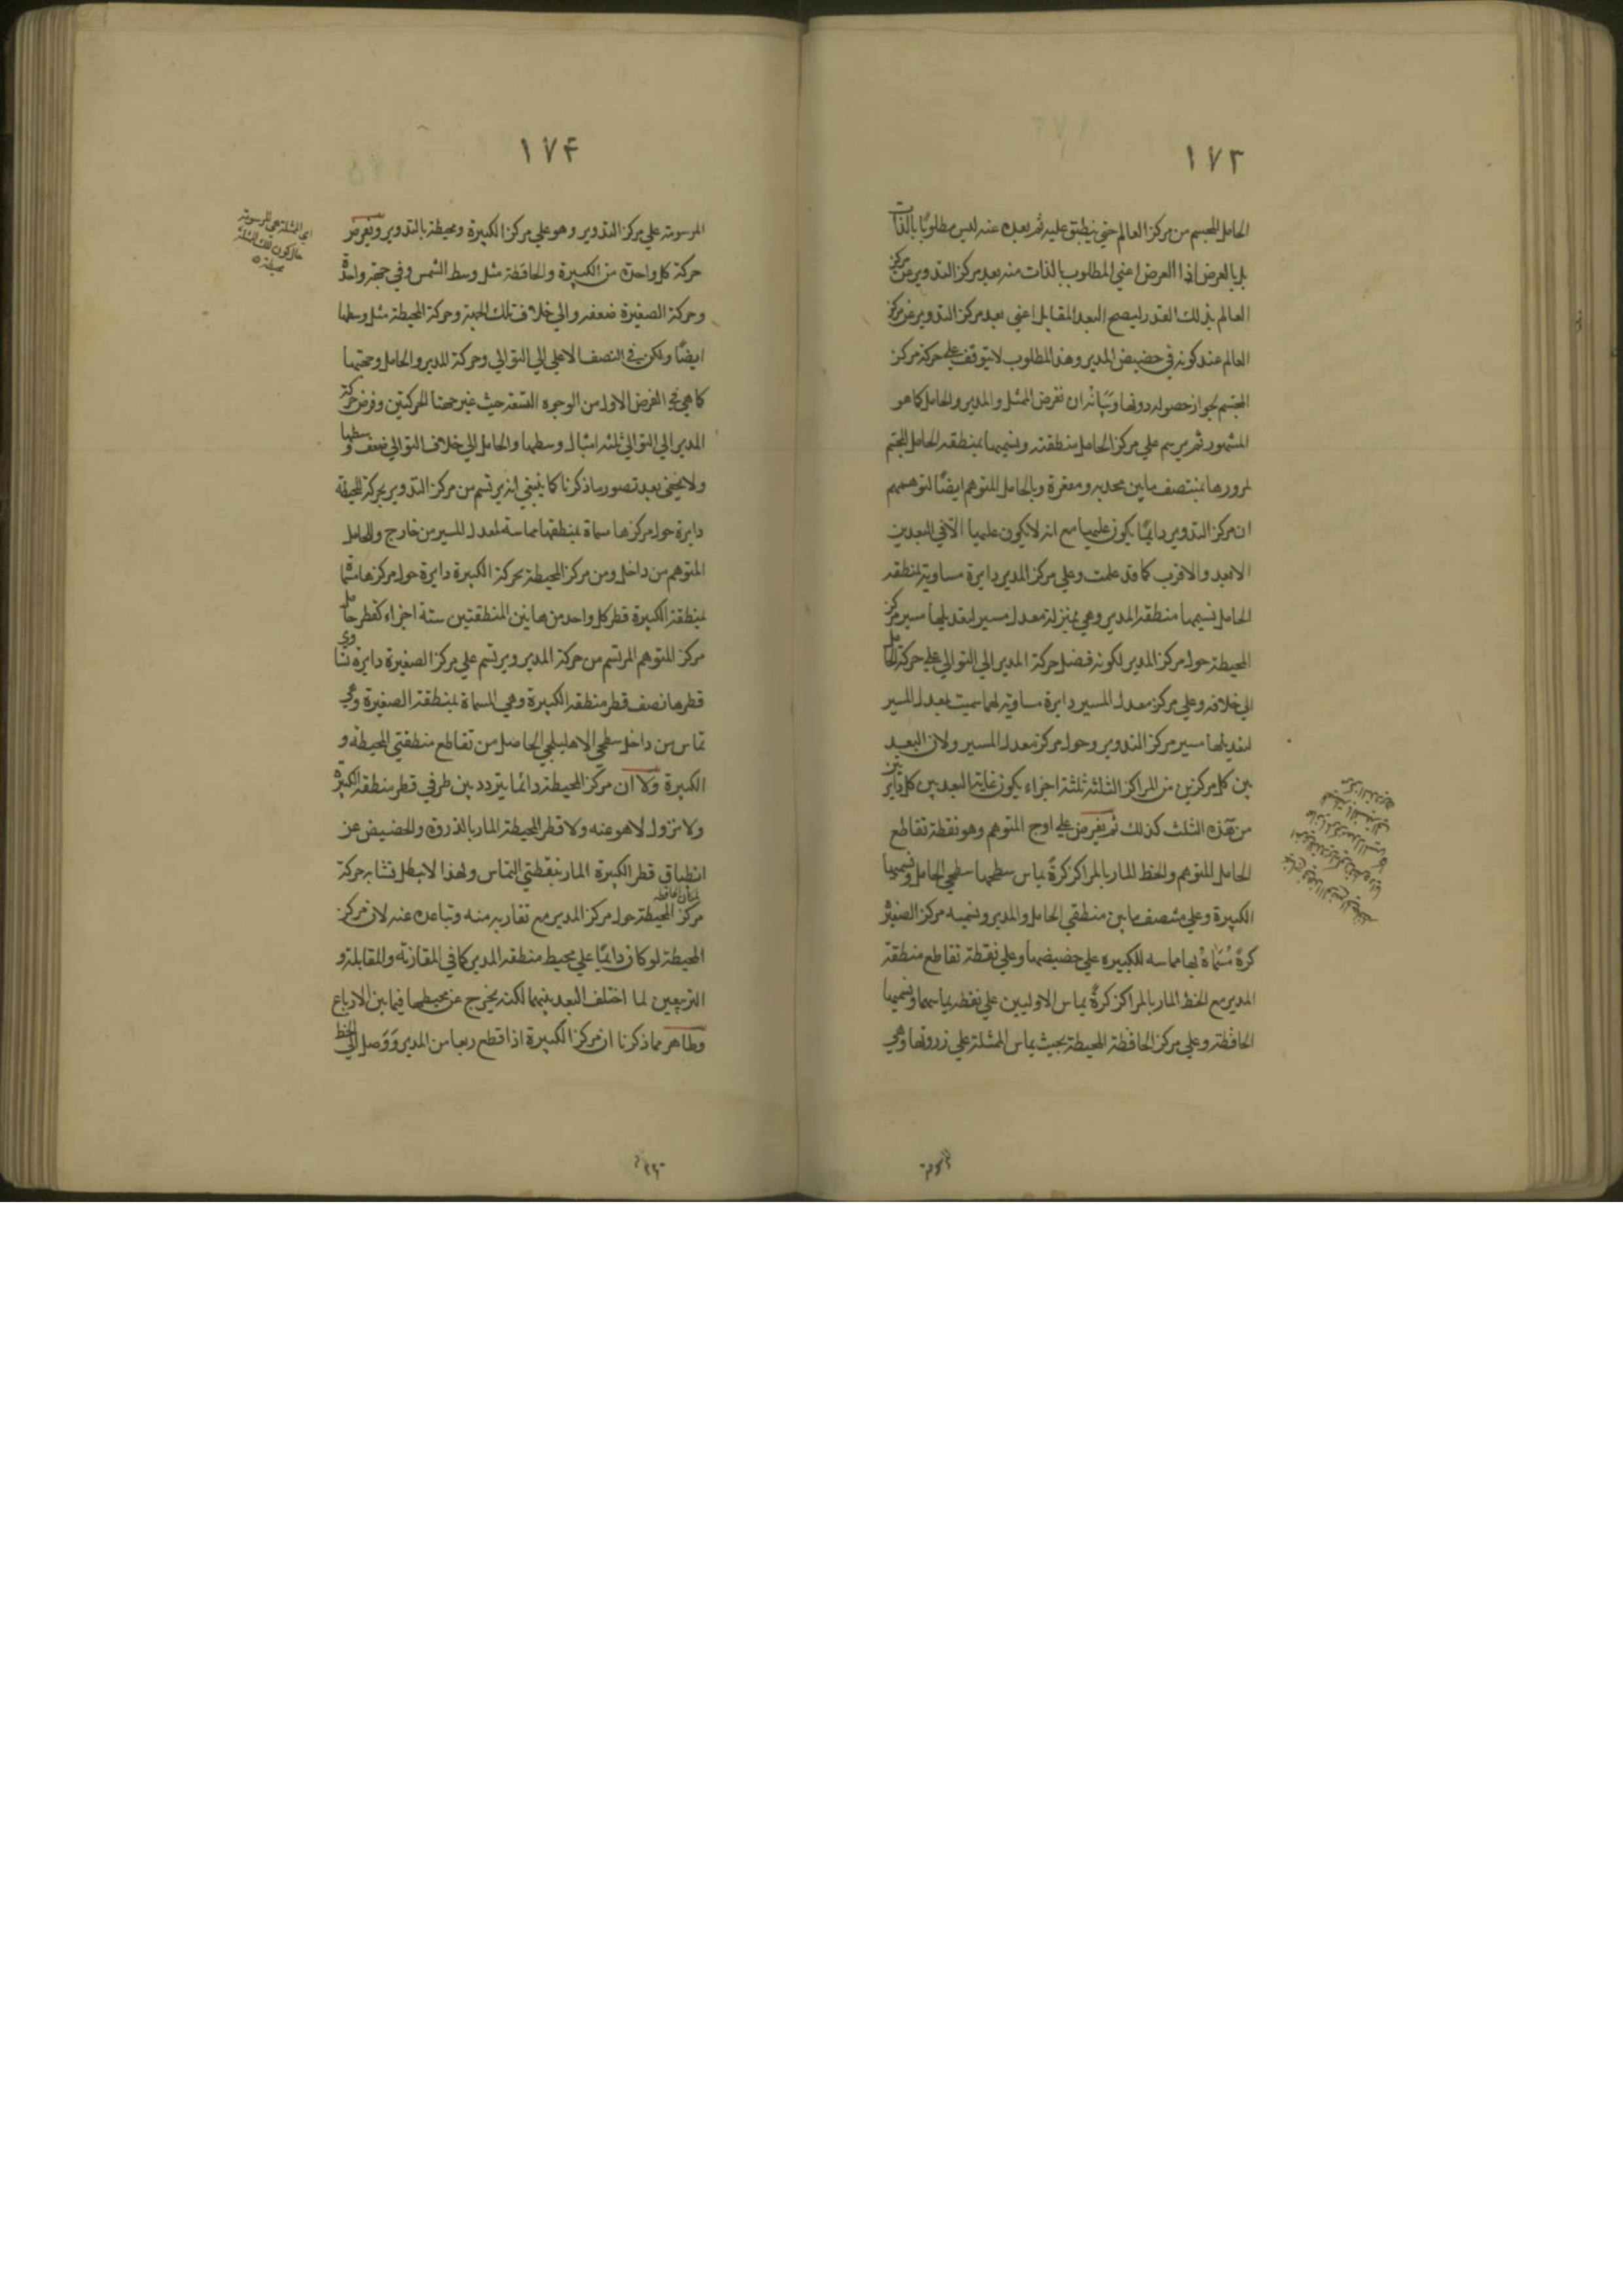 ١٧٣
الحامل المجسم من مركز العالم حتي ينطبق عليه ثم بعده عنه ليس مطلوبًا بالذات
بل بالعرض اذا العرض اعني المطلوب بالذات منه بعد مركز التدوير من مركز
العالم بذلك القدر ليصح البعد المقابل اعني بعد مركز التدوير عن مركز
العالم عند كونه في حضيض المدير وهذا المطلوب لا يتوقف علي حركة مركز
المجسم لجواز حصوله دونها وبيانه ان نفرض الممثل والمدير والحامل كما هو
المشهور ثم يرسم علي مركز الحامل منطقته ونسميها بمنطقه الحامل المجسم
لمرورها بمنتصف ما بين محدبه ومقعره وبالحامل المتوهم ايضًا لتوهمهم
ان مركز التدوير دايمًا يكون عليها مع انه لا يكون عليها الا في البعدين
الابعد والاقرب كما قد علمت وعلي مركز المدير دايرة مساوية لمنطقه
الحامل نسميها منطقه المدير وهي بمنزلة معدل مسير لتعديلها سير مركز
المحيطة حول مركز المدير لكونه فضل حركة المدير الي التوالي علي حركة الحامل
الي خلافه وعلي مركز معدل المسير دايرة مساوية لهما سميت بمعدل المسير
لتعديلها مسير مركز التدوير وحول مركز معدل المسير ولان البعد
بين كل مركزين من المراكز الثلثة ثلثة اجزاء يكون غاية البعد بين كل دايرتين
من هذه الثلث كذلك ثم نفرض علي اوج المتوهم وهو نقطة تقاطع
الحامل المتوهم والخط المار بالمراكز كرةً يماس سطحها سطحي الحامل ونسميها
الكبيرة وعلي منتصف ما بين منطقتي الحامل والمدير ونسميه مركز الصغيرة
كرةً مُسَمّاةً بها مماسه للكبيره علي حضيضها وعلي نقطة تقاطع منطقة
المدير مع الخط المار بالمراكز كرةً يماس الاوليين علي نقطة تماسهما ونسميها
الحافظة وعلي مركز الحافظة المحيطة بحيث يماس الممثلة علي ذروتها وهي
المرسومة
١٧۴
المرسومة علي مركز التدوير وهو علي مركز الكبيرة ومحيطة بالتدوير ونفرض
حركة كل واحدة من الكبيرة والحافظة مثل وسط الشمس وفي جهة واحدة
وحركة الصغيرة ضعفه والي خلاف تلك الجهة وحركة المحيطة مثل وسطها
ايضًا ولكن في النصف الاعلي الي التوالي وحركة المدير والحامل وجهتهما
كما هي في الفرض الاول من الوجوه التسعة حيث غير جهتا الحركتين وفرض حركة
المدير الي التوالي ثلثه امثال وسطها والحامل الي خلاف التوالي ضعف وسطها
ولا يخفي بعد تصور ما ذكرنا كما ينبغي انه يرتسم من مركز التدوير بحركة المحيطة
دايرة حول مركزها مسماة بمنطقتها مماسة لمعدل المسير من خارج والحامل
المتوهم من داخل ومن مركز المحيطة بحركة الكبيرة دايرة حول مركزها مسماة
بمنطقة الكبيرة قطر كل واحد من هاتين المنطقتين ستة اجزاء كقطر حامل
مركز المتوهم المرتسم من حركة المدير ويرتسم علي مركز الصغيرة دايرة تساوي
قطرها نصف قطر منطقه الكبيرة وهي المسماة بمنطقة الصغيرة وهي
تماس من داخل سطحي الاهليلجي الحاصل من تقاطع منطقتي المحيطة و
الكبيرة ولا ان مركز المحيطة دائما يتردد بين طرفي قطر منطقه الكبيرة
ولا نزول لا هو عنه ولا قطر المحيطة المار بالذروة والحضيض عن
انطباق قطر الكبيرة المار بنقطتي التماس ولهذا لا يبطل تشابه حركة
مركز المحيطة حول مركز المدير مع تقاربه منه وتباعده عنه لان مركز
المحيطة لو كان دايمًا علي محيط منطقه المدير كما في المقارنة والمقابلة و
التربيعين لما اختلف البعد بينهما لكنه يخرج عن محيطها فيما بين الارباع
وظاهر مما ذكرنا ان مركز الكبيرة اذا قطع ربعا من المدير ووصل الي الخط
اي الممثلة هي المرسومة
حال كون تلك الممثلة
محيطة